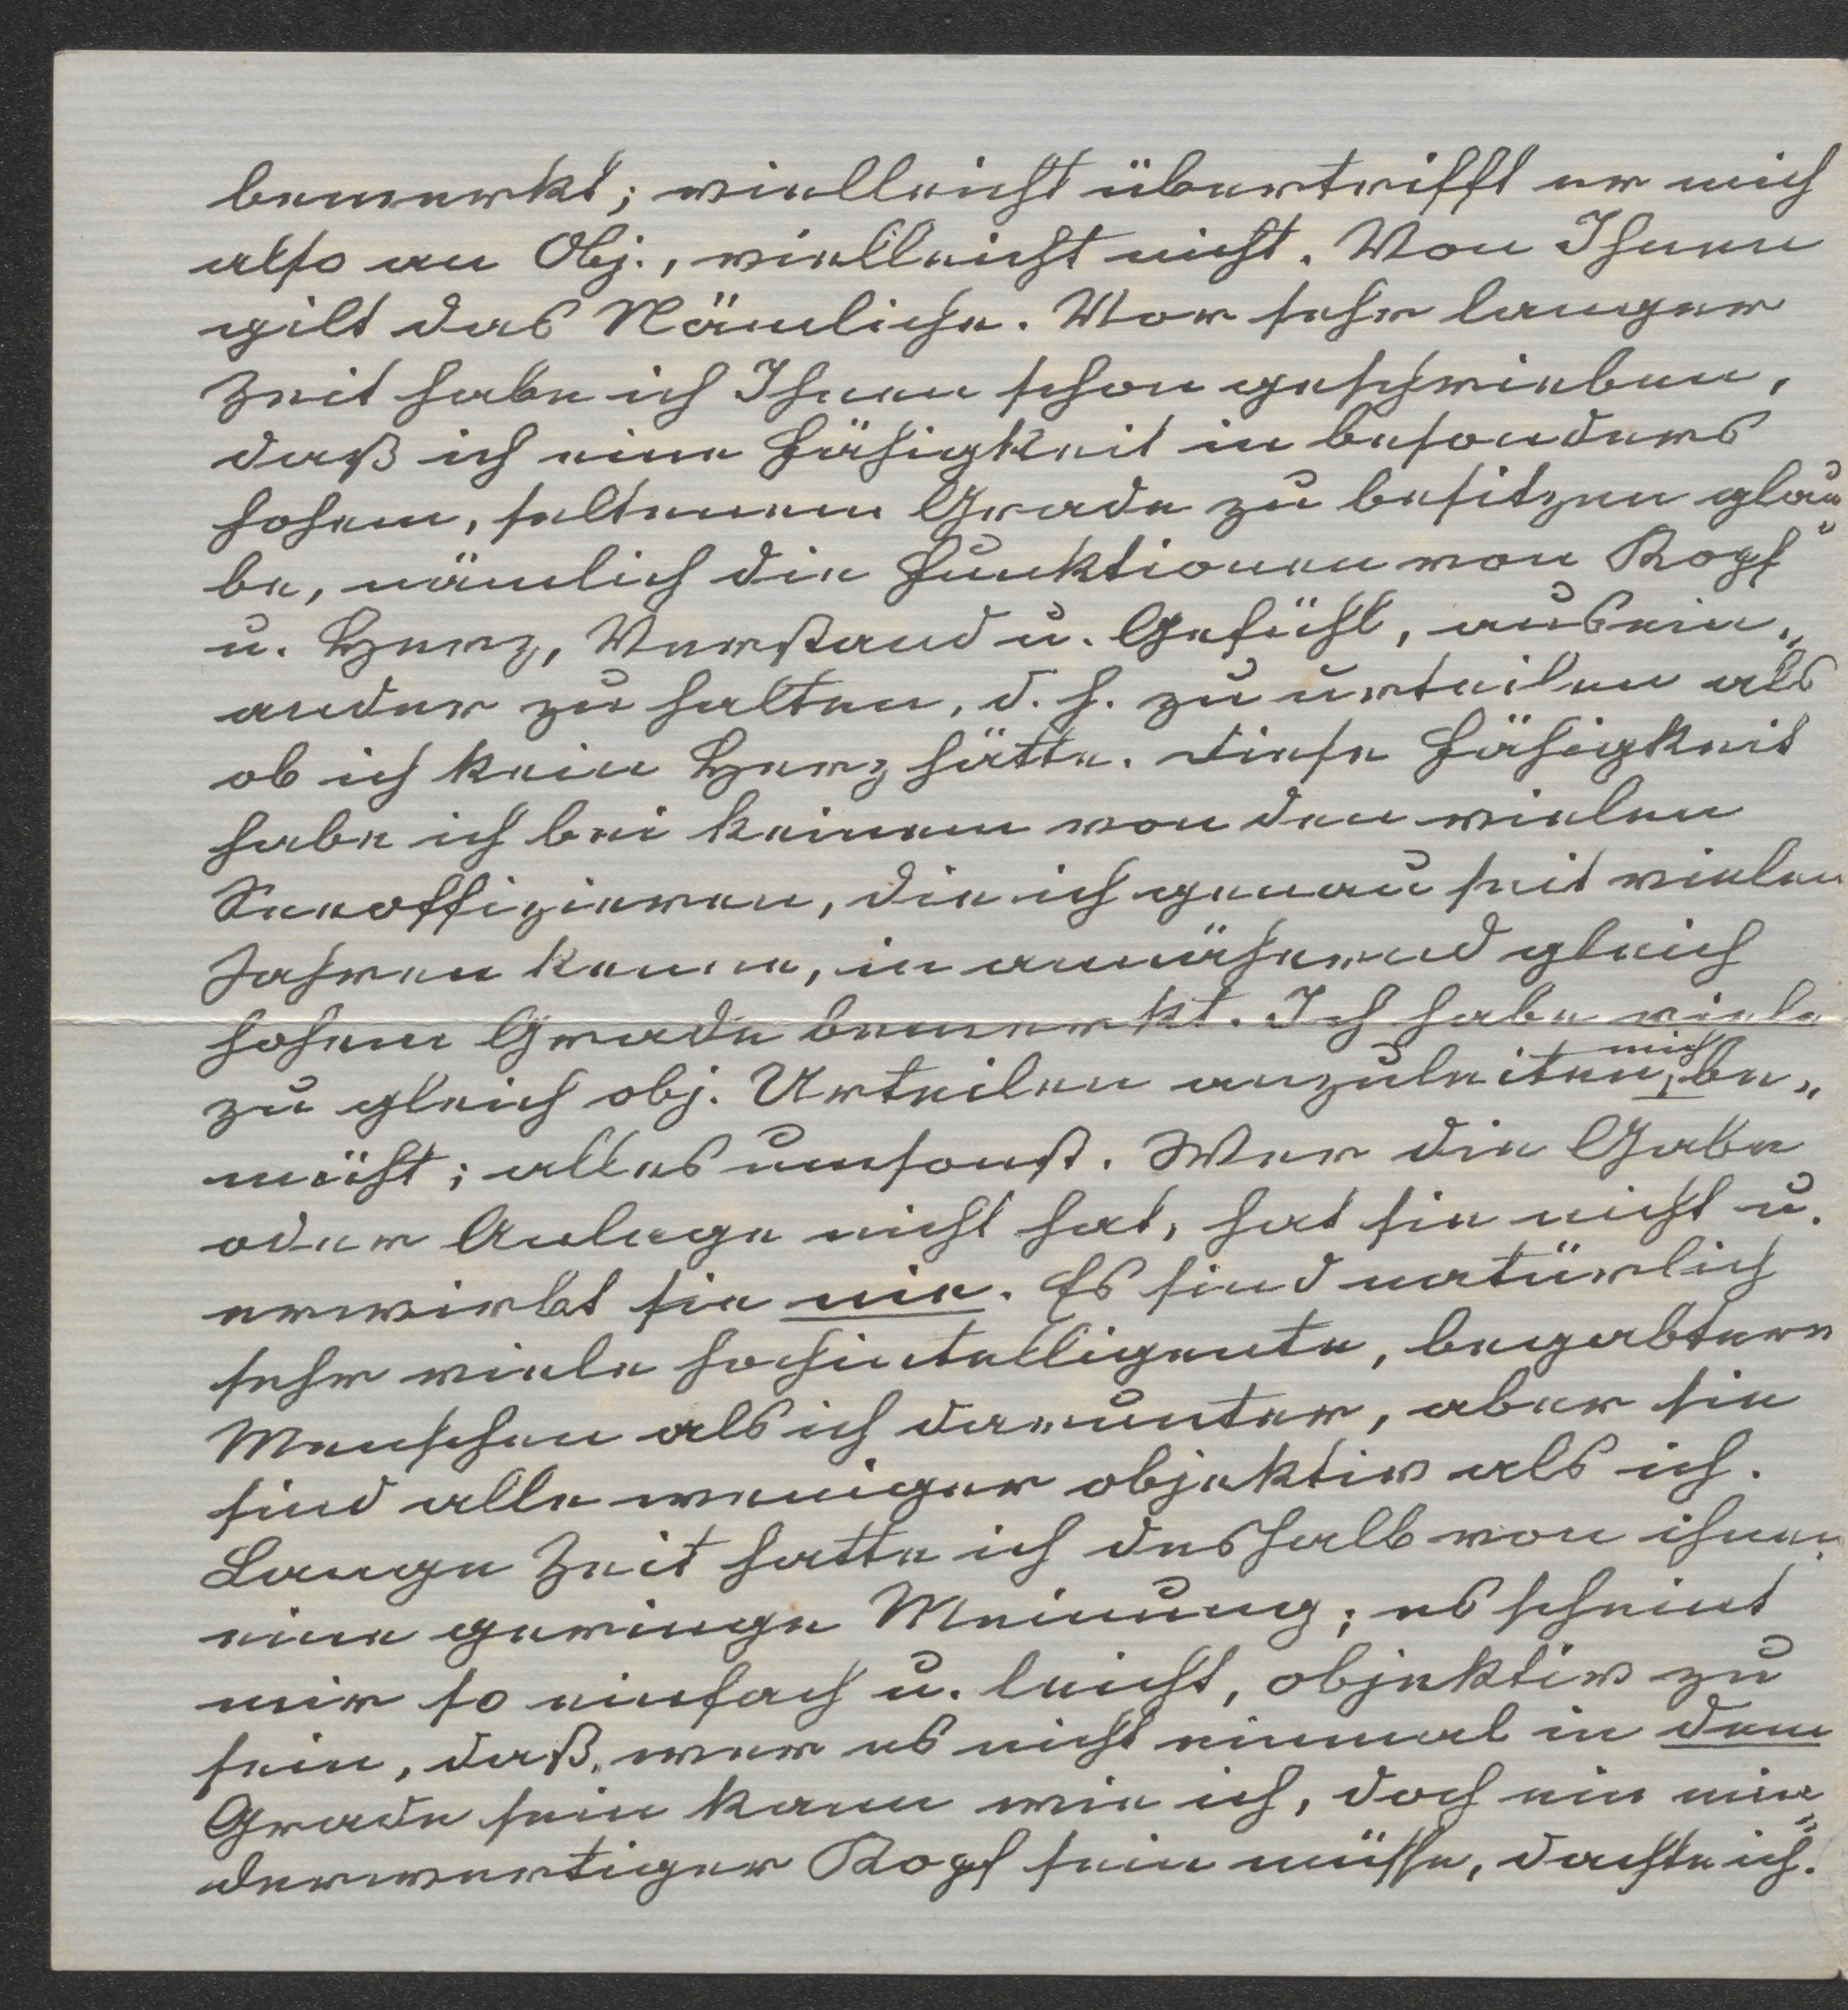 bemerkt; vielleicht übertrifft er mich
also an Obj., vielleicht nicht. Von Ihnen
gilt das Nämliche. Vor sehr langer
Zeit habe ich Ihnen schon geschrieben,
daß ich eine Fähigkeit in besonders
hohem, seltenem Grade zu besitzen glau-
be, nämlich die Funktionen von Kopf
u. Herz, Verstand u. Gefühl, ausein-
ander zu halten, d. h. zu urteilen als
ob ich kein Herz hätte. Diese Fähigkeit
habe ich bei keinem von den vielen
Seeoffizieren, die ich genau seit vielen
Jahren kenne, in annähernd gleich
hohem Grade bemerkt. Ich habe viele
zu gleich obj. Urteilen anzuleiten, mich be-
müht; alles umsonst. Wer die Gabe
oder Anlage nicht hat, hat sie nicht u.
erwirbt sie nie. Es sind natürlich
sehr viele hochintelligente, begabtere
Menschen als ich darunter, aber sie
sind alle weniger objektiv als ich.
Lange Zeit hatte ich deshalb von ihnen
eine geringe Meinung; es scheint
mir so einfach u. leicht, objektiv zu
sein, daß, wer es nicht einmal in dem
Grade sein kann wie ich, doch ein min-
derwertiger Kopf sein müsse, dachte ich.